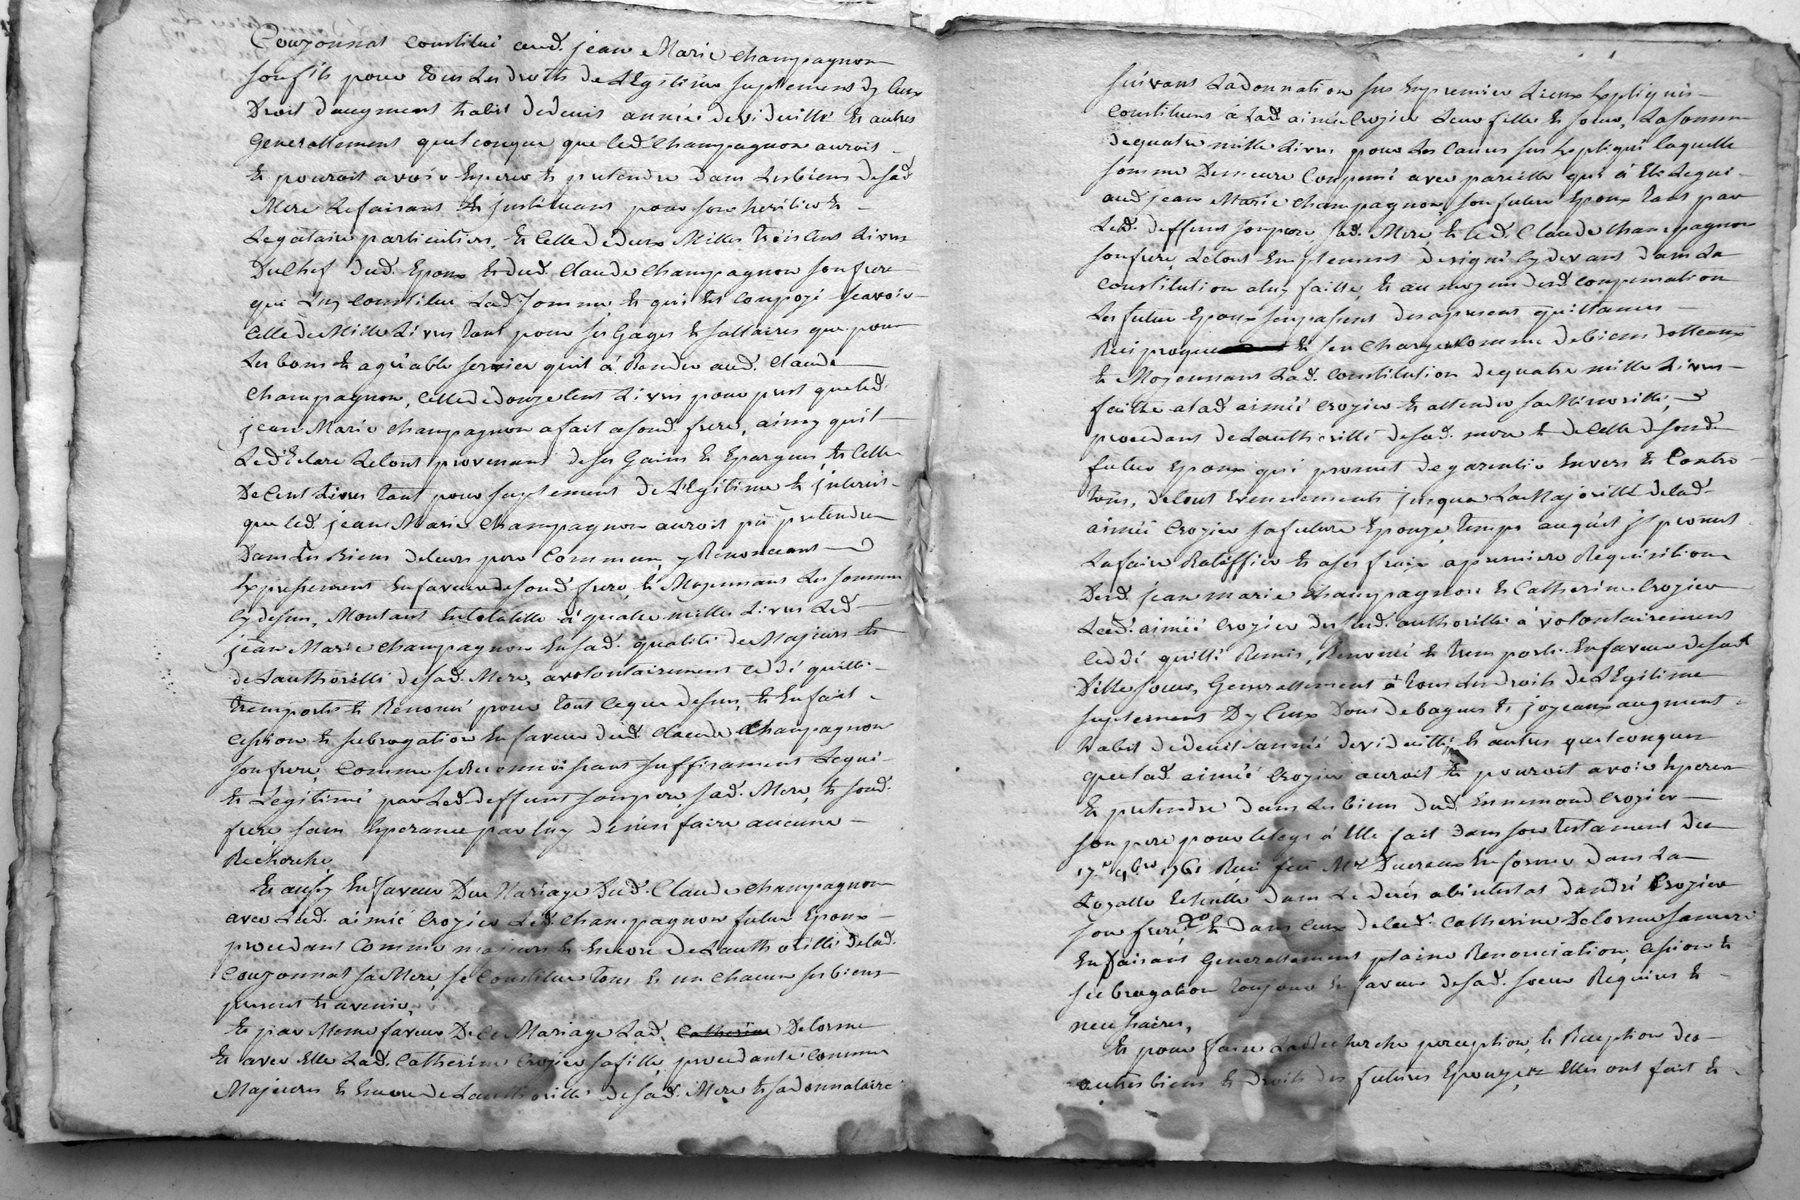 Couzonnat constitué aud. jean Marie champagnon
son fils pour tous les droits de Legitime suplement dy ceux
Droit daugment habit dedeuil année de viduitté et autres
Generallement quelconque que led. Champagnon auroit
et pouroit avoir Esperer et pretendre dans Les biens de sad
Mere Le faisant et jnstituant pour son heritier et
Legataire particuliere, et Celle dedeux Milles trois Cent Livres
Du Chef dud. Epoux et dud. Claude Champagnon son frere
qui Luy constitue Lad. Somme et qui Est Compozé scavoir
Celle de Mille Livres tant pour ses Gages et sallaires que pour
Les bons et agréable service quil à Rendu aud. Claude
Champagnon, Celle dedouze Cent Livres pour prest que led.
jean Marie Champagnon a fait a sond. frere, ainsy quil
Led'Eclare Le tout provenant de ses Gains et Epargnes, et Celle
De Cent Livres tant pour suplement de L'Egitime et jnterest
que led. jean Marie Champagnon auroit pû pretendre
Dans Les Biens de leurs pere Commun, y Renonceant
Expressement En faveur de sond. frere, et Moyennant Les sommes
Cy dessus, Montant En totalitté à quatre milles Livres Led
jean Marie champagnon En sad. qualité de Majeurs et
de Lauthoritté de sad. Mere, a volontairement ceddé quitté
tremporté et Renoncé pour tout ce que dessus, et En fait
Cession et subrogation En faveur dud. Claude Champagnon
son frere, Comme se Reconnoissant suffisament Legué
et Legitimé par Led. deffunt son pere, sad. Mere, et sond.
frere sans Esperance par Luy d'en rien faire aucune
Recherche
Et aussy En faveur Du Mariage Dud. Claude champagnon
avec Lad. aimée Crozier Led. Champagnon futur Epoux
procedant Comme majeurs et Encore de Lauthoritté de lad.
Couzonnat sa Mere se Constitue tous et un chacun ses biens
present et avenir,
Et par Meme faveur De ce Mariage Lad. Catherine Delorme
et avec Elle Lad. Catherine Crozier sa fille, procedante Comme
Majeures et Encore de Lauthoritté de sad. Mere et sa donnataire
suivant La donnation sus En premier Lieux Expliqués
Constituent à Lad. aimée Crozier Leur fille et soeur, La somme
de quatre mille Livres pour Les Causes sus Expliqué laquelle
somme Demeure Compensé avec pareille qui à Eté Legué
aud. jean Marie Champagnon, son futur Epoux tant par
Led. deffunt son pere, sad. Mere, et led. Claude Champagnon
son frere, Le tout Emplement designé Cy devant dans La
Constitution a luy faitte, et au moyen desd. Compensation
Les futur Epoux se passent des apresent quittances
Reciproque et sen Charge Comme de biens dotteaux
et Moyennant Lad. Constitution de quatre mille Livres
faitte a lad aimée Crozier et attendu sa Minoritté,
procedant de Lauthoritté de sad. mere et de Celle de sond.
futur Epoux qui promet de garentir Envers et Contre
tous, de tout Evennements jusqua La Majoritté de lad.
aimée Crozier sa future Epouze, temps auquel jl promet
La faire Ratiffier et a ses fraix a premiere Requisition
Desd. jean marie champagnon et Catherine Crozier
Lad. aimée Crozier desusd. authoritté à volontairement
Ceddé quitté Remis, Renoncé et tremporté En faveur de sad.
Ditte soeur, Generallement à tous Les droits de L'Egitime
suplement Dy Ceux Dons de bagues et joyeaux augment
habit de deuil année de viduitté et autres quelconques
que lad. aimée Crozier auroit et pouroit avoir Esperer
et pretendre dans Les biens dud. Ennemond Crozier
son pere pour le legs à Elle fait dans son testament du
17.e 9.bre 1761 Receu feu M.e Ducreux En forme dans La
Loyalle Echeutte dans Le deces abintestat dandré Crozier
son frere et dans Ceux de lad. Catherine Delorme sa mere
En faisant Generallement plaine Renonciation, Cession et
subrogation toujours En faveur de sad. soeur Requises et
necessaires,
Et pour faire La Recherche perception, et Reception des
autres biens et droits des futures Epouzes Elles ont fait et